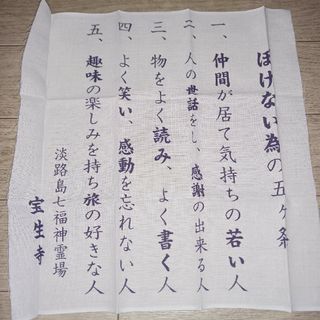 ぼけない為の五ヶ条
一、仲間が居て気持ちの若い人
二、人の世話をし、感謝の出来る人
三、物をよく読み、よく書く人
四、よく笑い、感動を忘れない人
五、趣味の楽しみを持ち旅の好きな人
淡路島七福神霊場
宝生寺